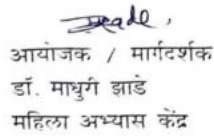 आयोजक / मार्गदर्शक
डॉ. माधुरी झाडे
महिला अभ्यास केंद्र